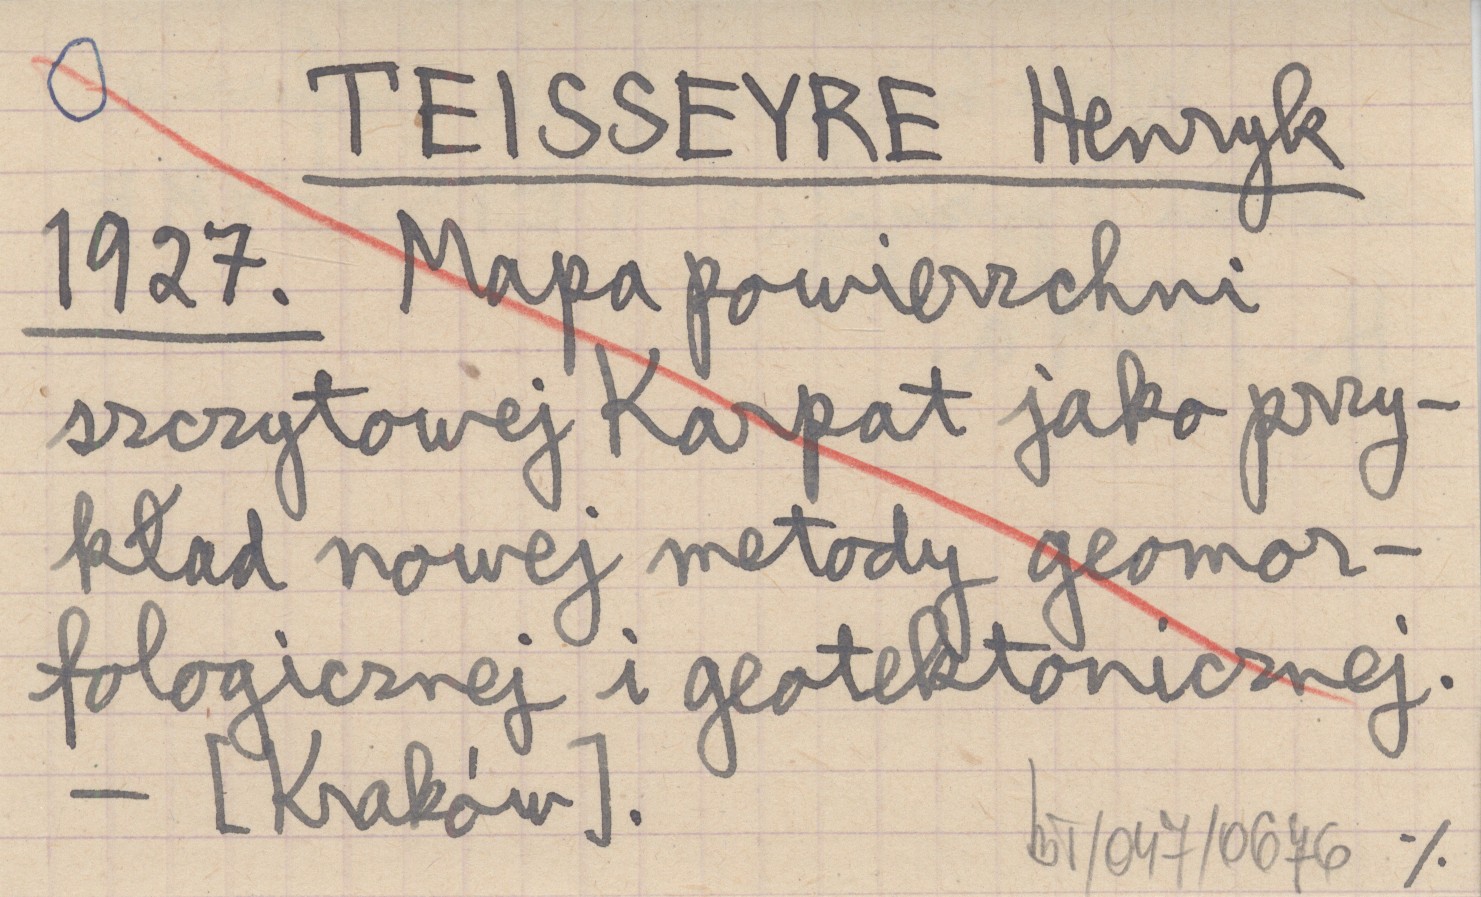 TEISSEYRE Henryk
1927. Mapa powierzchni
szczytowej Karpat jako przy-
kład nowej metody geomor-
fologicznej i geotektonicznej.
– [Kraków].
bT/047/0676 ·/.